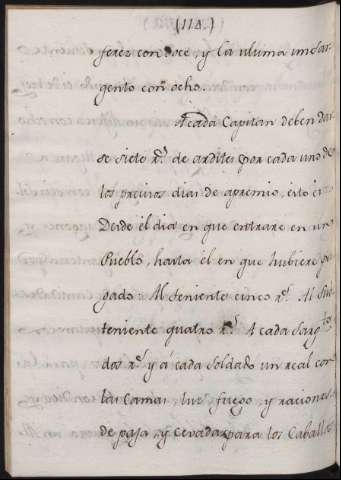 (114.)
ferez con doce, y la ultima un Sar-
gento con ocho.
A cada Capitan deben dar-
se siete r.^s de ardites por cada uno de
los precisos dias de apremio, esto es
Desde el dia en que entrare en un
Pueblo, hasta el en que hubiere pa-
gado: Al teniente cinco r.^s Al Sub-
teniente quatro r.^s A cada Sarg.^to
dos r.^s y á cada soldado un real con
la Cama, luz, fuego, y raciones
de paja, y cevada para los Caballos